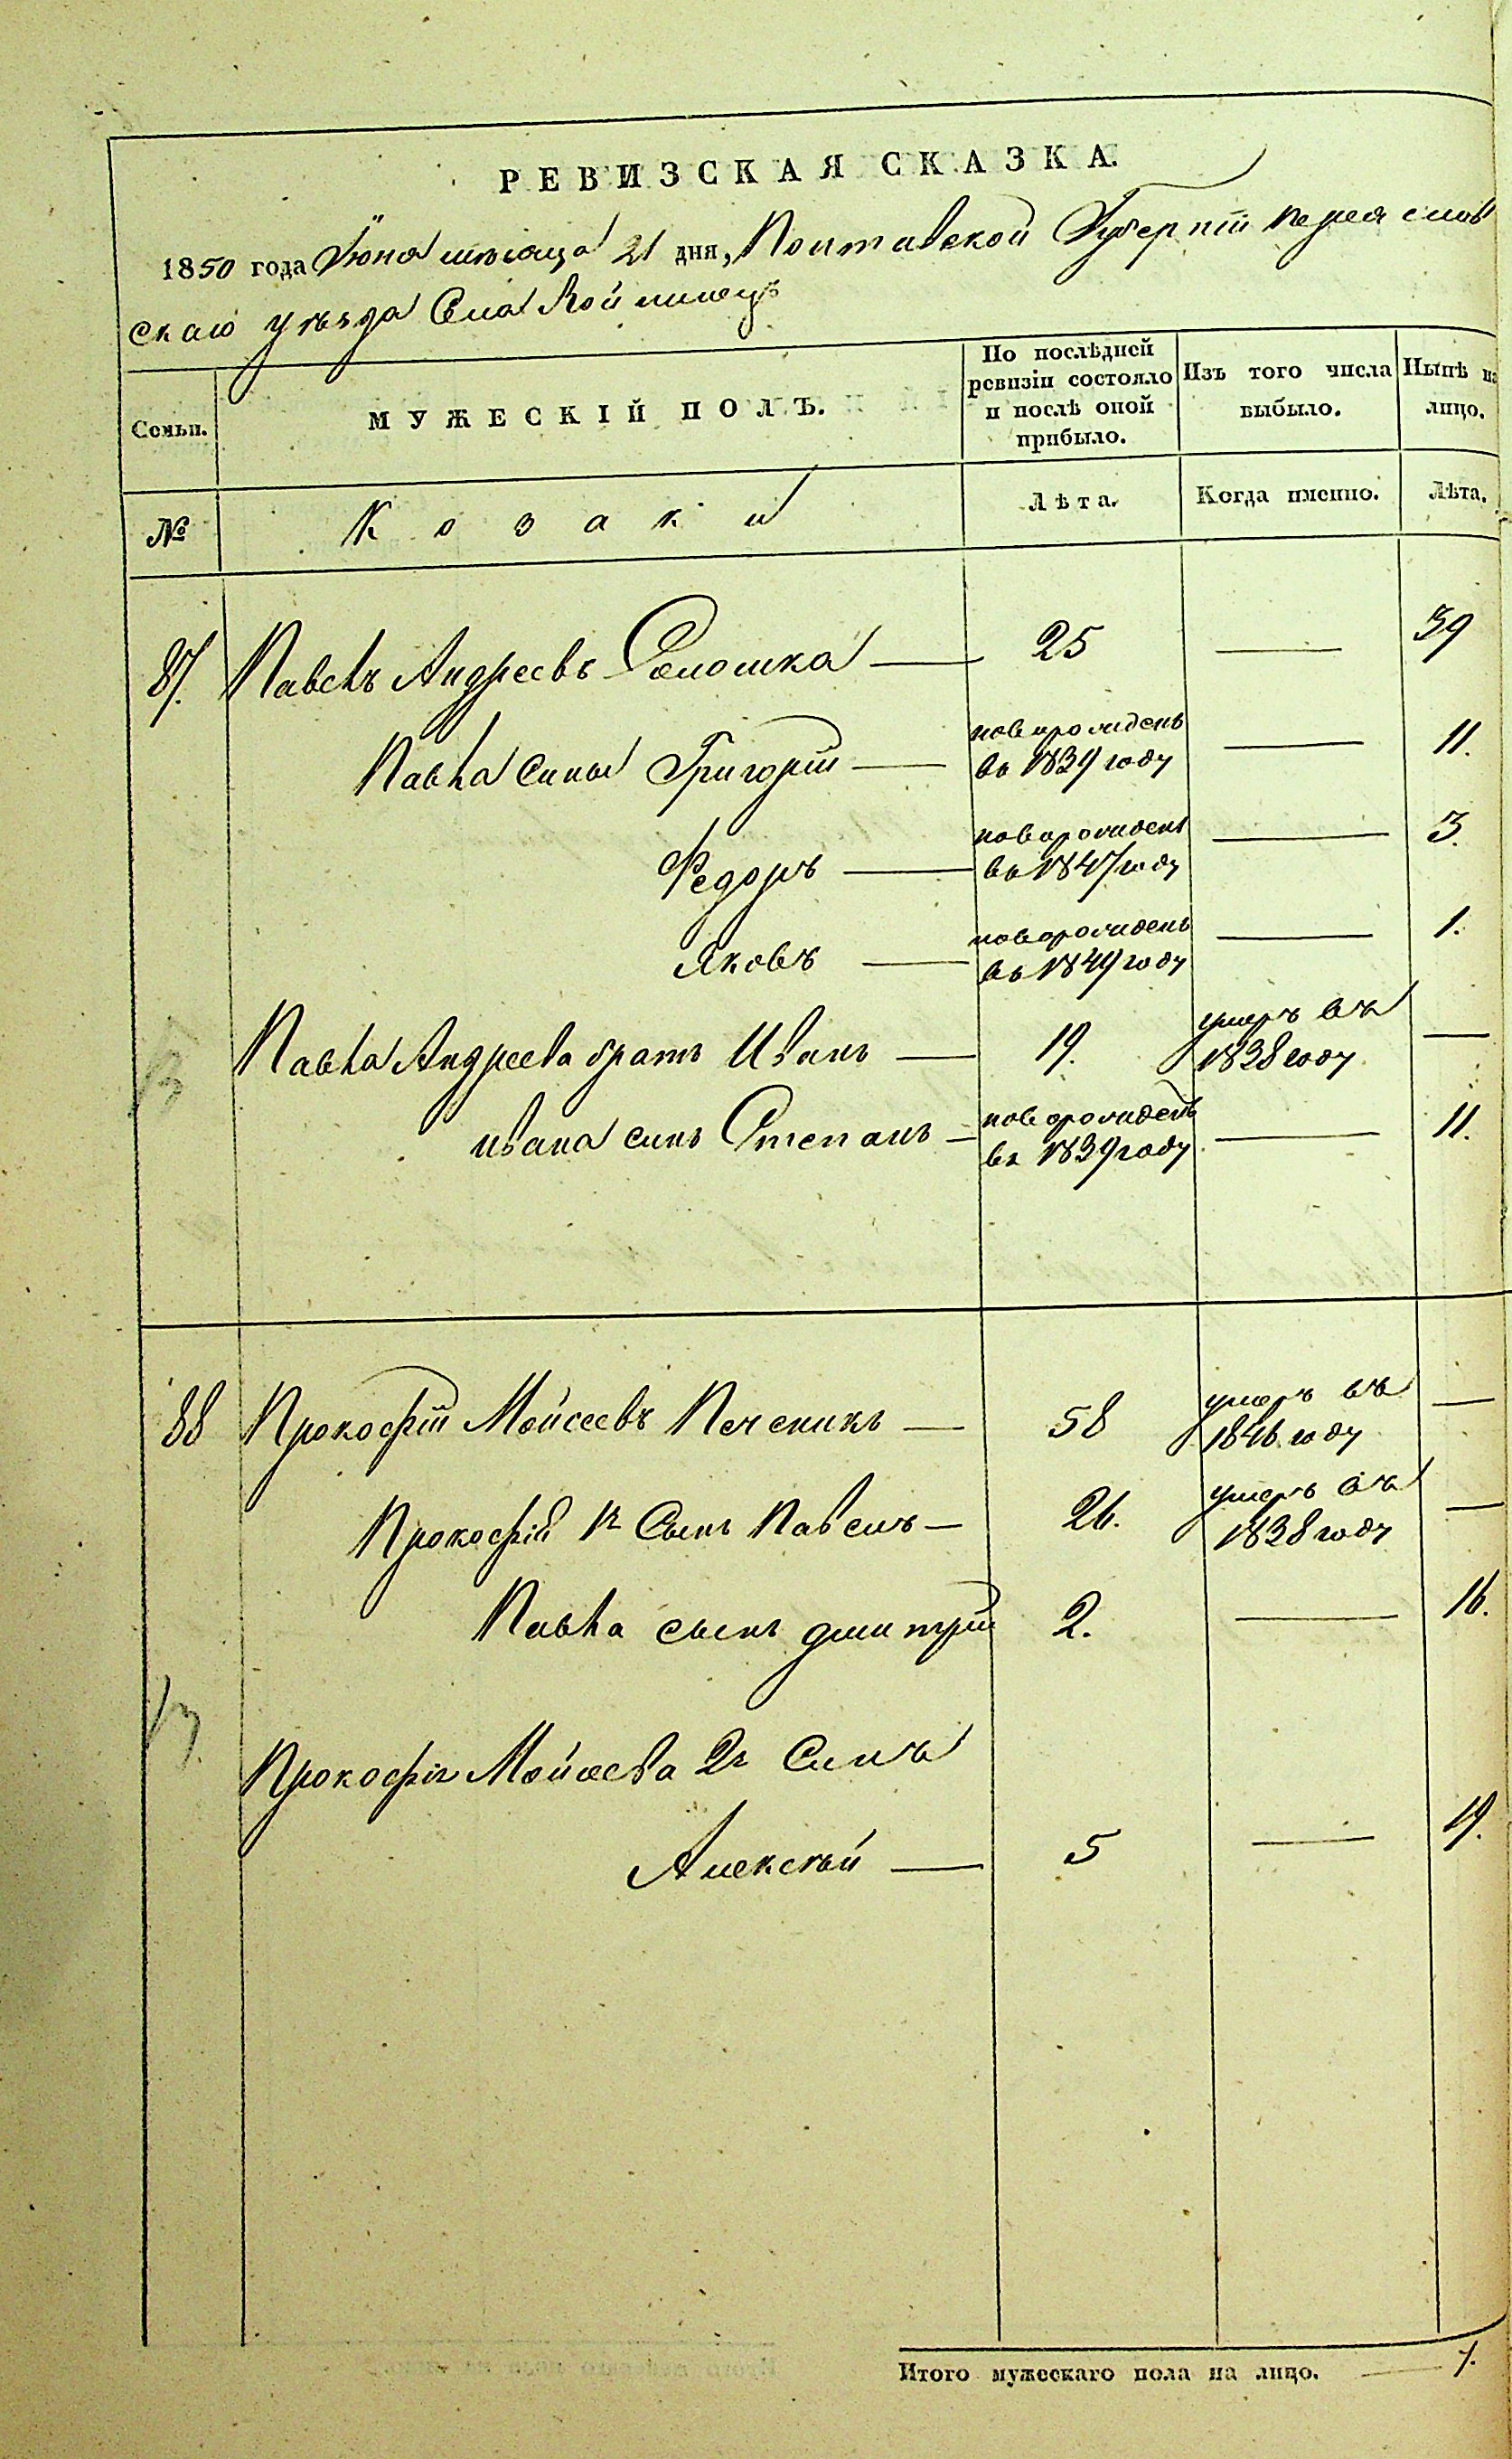 РЕВИЗСКАЯ СКАЗКА.
1850 года Іюня мѣсяца 21 дня, Полтавской Губерніи Переяслов
скаго уѣзда Села Войтовецъ
Семьи.
МУЖЕСКІЙ ПОЛЪ.
По послѣдней ревизіи состояло и послѣ оной прибыло.
Изъ того числа выбыло.
Нынѣ на лицо.
№
Козаки
Лѣта.
Когда именно.
Лѣта.
87. Павелъ Андреевъ Соломка — 25 — 39
Павла сины Григорій — новорожденъ въ 1839 году — 11.
Федоръ — новорожденъ въ 1847 году — 3.
Яковъ — новорожденъ въ 1849 году — 1.
Павла Андреева братъ Иванъ — 19. умеръ въ 1838 году —
Ивана синъ Степанъ — новорожденъ въ 1839 году — 11.
88 Прокофій Мойсеевъ Печеникъ — 58 умеръ въ 1846 году —
Прокофія 1й Сынъ Павелъ — 26. умеръ въ 1838 году —
Павла сынъ Дмитрій 2. — 16.
Прокофія Мойсеева 2й Синъ
Алексѣй — 5 — 19.
Итого мужескаго пола на лицо. — 7.